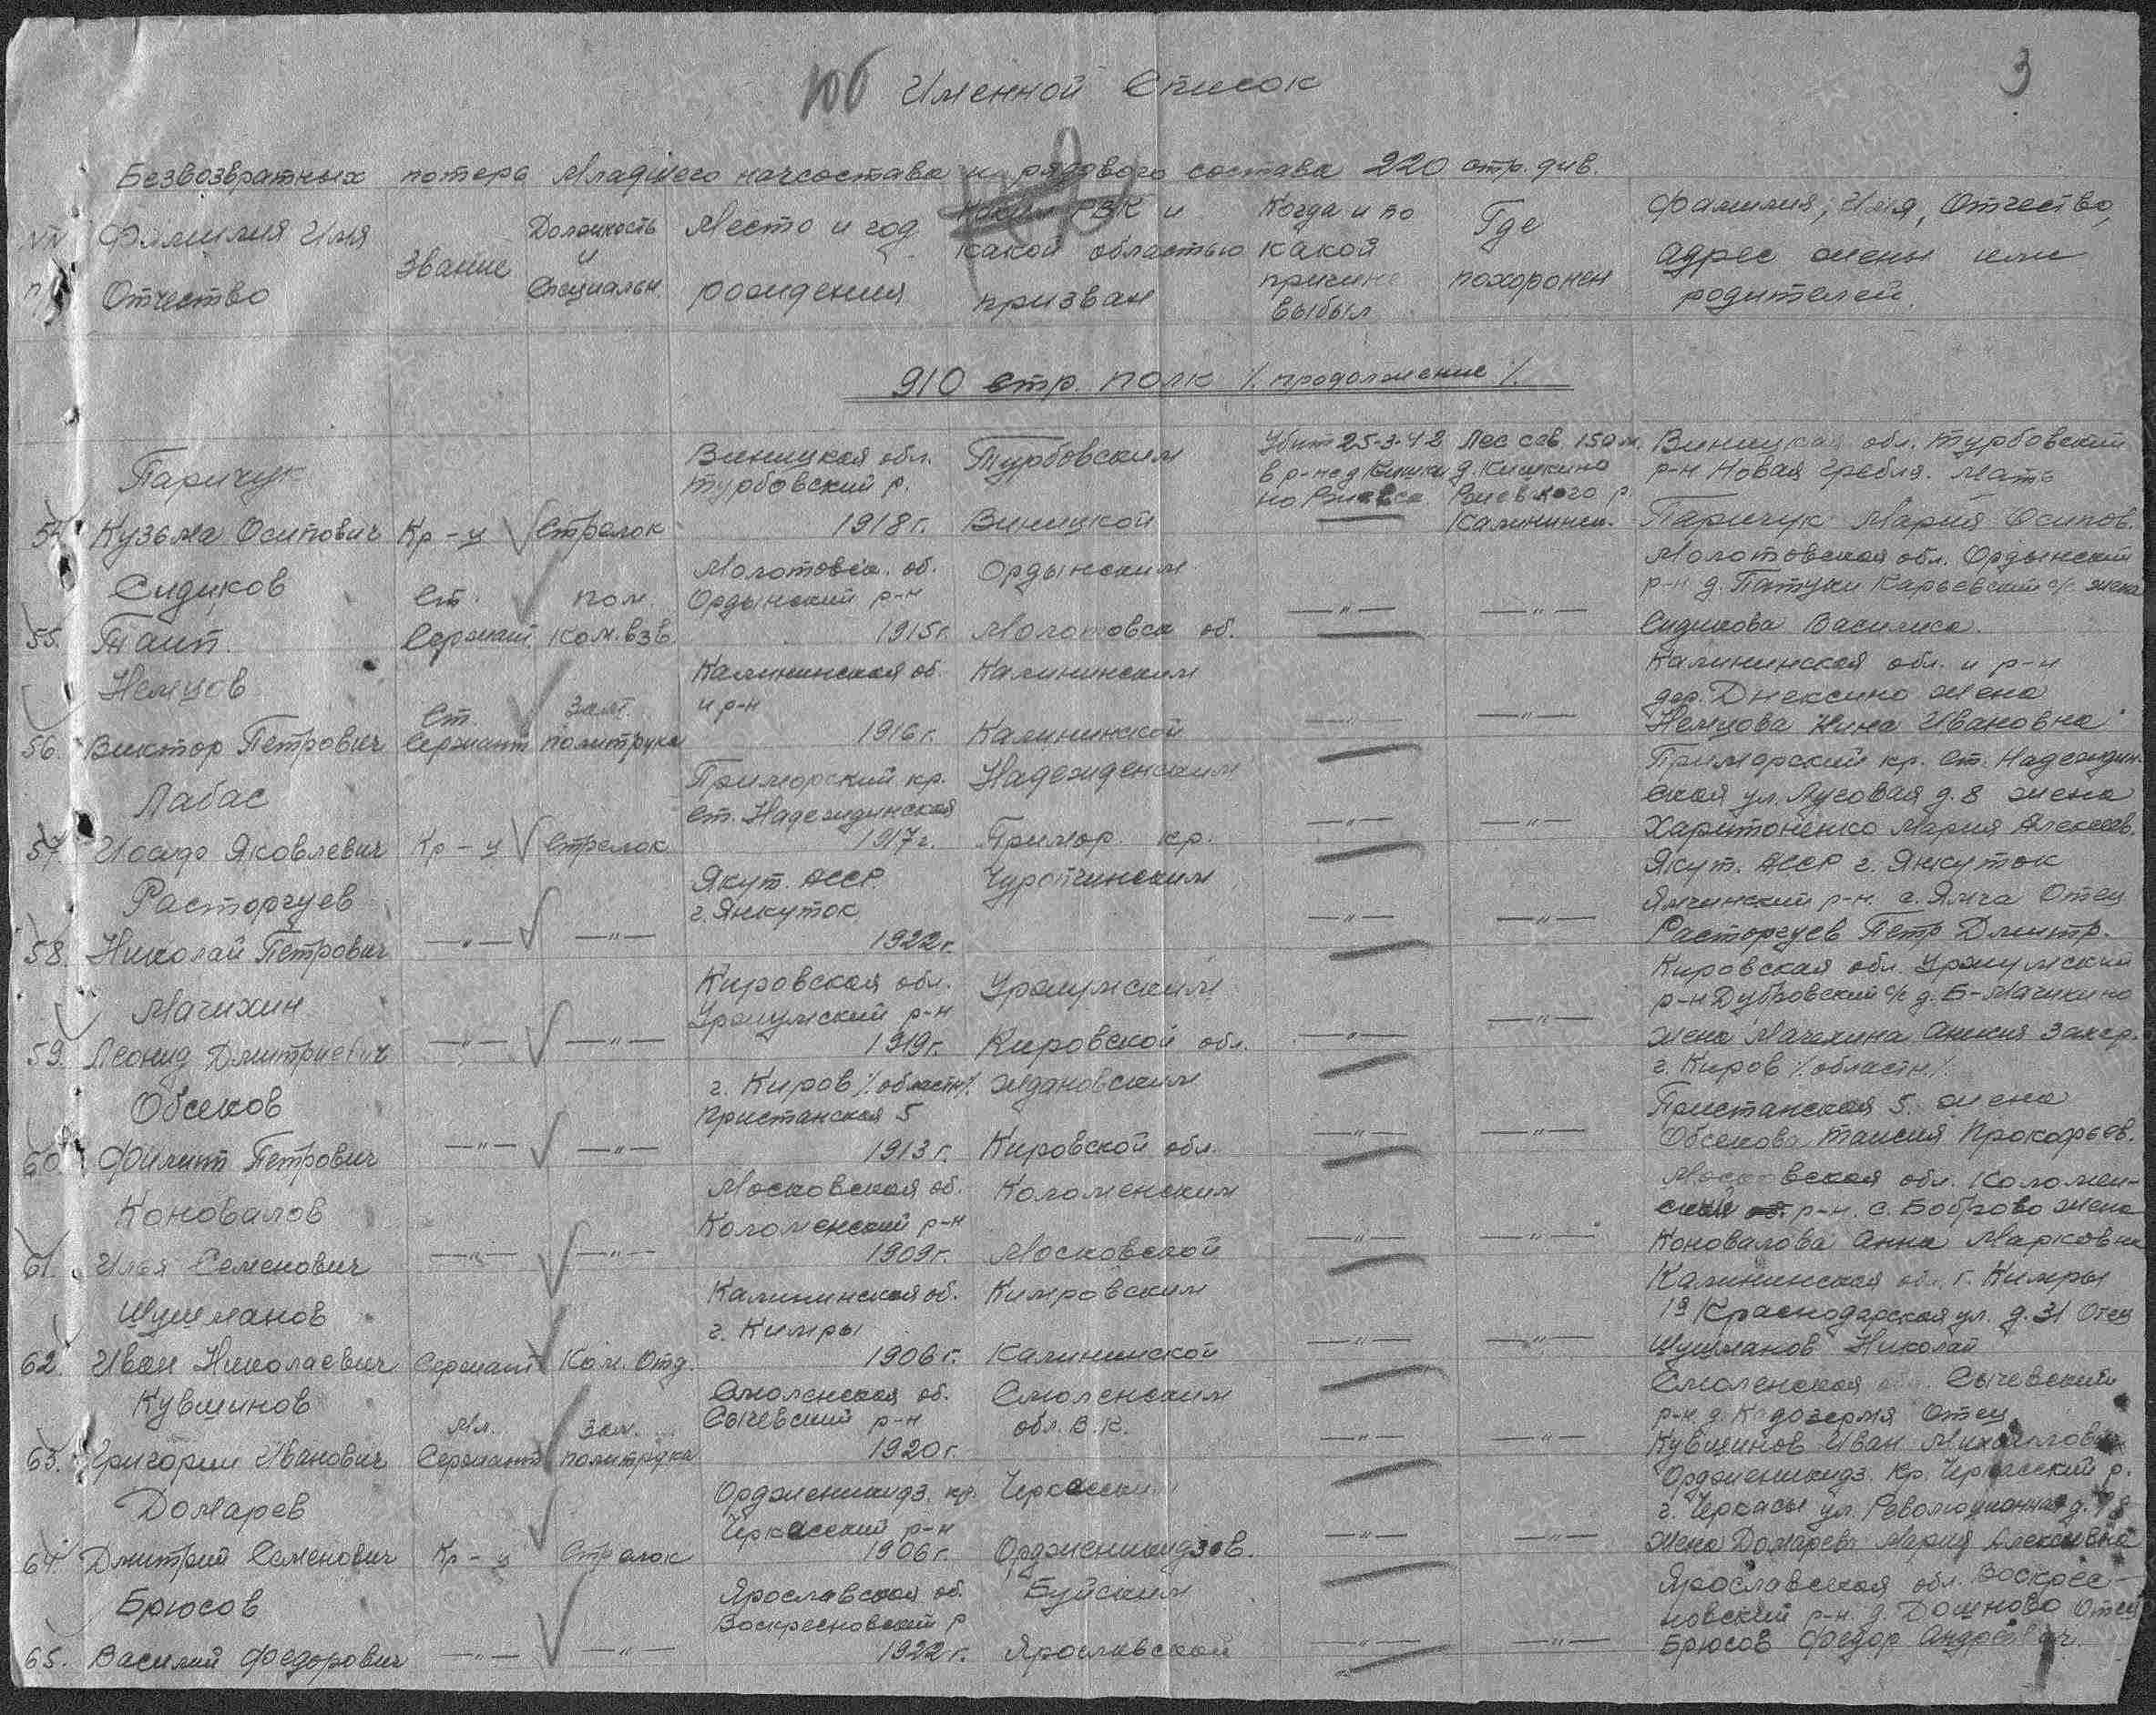 106 Именной Список
3
Безвозвратных потерь Младшего начсостава и рядового состава 220 стр. див.
NN п/п
Фамилия Имя Отчество
Звание
Должность и Специальн.
Место и год рождения
Каким РВК и какой областью призван
Когда и по какой причине выбыл
Где похоронен
Фамилия, Имя, Отчество, адрес жены или родителей.
910 стр. полк /. продолжение /.
54. Паричук Кузьма Осипович
Кр-ц
Стрелок
Виницкая обл. Турбовский р. 1918 г.
Турбовским Виницкой
Убит 25-3-42 в р-не д Кишкино Ржевск.
Лес сев. 150 м. д. Кишкино Ржевского р. Калининск.
Виницкая обл. Турбовский р-н Новая Гребля. Мать Паричук Мария Осипов.
55. Сидиков Таип.
Ст. Сержант
пом. ком. взв.
Молотовск. об. Ордынский р-н 1915 г.
Ордынским Молотовск об.
—"—
—"—
Молотовская обл. Ордынский р-н д. Патуки Карьевский с/с жена Сидикова Василиса.
56. Немцов Виктор Петрович
Ст. Сержант
Зам. политрука
Калининская об. и р-н 1916 г.
Калининским Калининской
—"—
—"—
Калининская обл. и р-н дер. Днексино жена Немцова Нина Ивановна
57. Лабас Иосиф Яковлевич
Кр-ц
Стрелок
Приморский кр. ст. Надеждинская 1917 г.
Надежденским Примор. кр.
—"—
—"—
Приморский кр. ст. Надеждинская ул. Луговая д. 8 жена Харитоненко Мария Алексеев.
58. Расторгуев Николай Петрович
—"—
—"—
Якут. АССР. г. Янкуток 1922 г.
Чурапчинским
—"—
—"—
Якут. АССР г. Янкуток Ямчинский р-н. с. Ямча Отец Расторгуев Петр Дмитр.
59. Мачихин Леонид Дмитриевич
—"—
—"—
Кировская обл. Уржумский р-н 1919 г.
Уржумским Кировской обл.
—"—
—"—
Кировская обл. Уржумский р-н Дубровский с/с д. Б-Мачихино жена Мачихина Захар.
60. Обсеков Филипп Петрович
—"—
—"—
г. Киров /.областн/. Пристанская 5 1913 г.
Ждановским Кировской обл.
—"—
—"—
г. Киров /.областн/. Пристанская 5. жена Обсекова Таисия Прокофьев.
61. Коновалов Илья Семенович
—"—
—"—
Московская об. Коломенский р-н 1909 г.
Коломенским Московской
—"—
—"—
Московская обл. Коломенский р-н. с. Боброво жена Коновалова Анна Марковна
62. Шушманов Иван Николаевич
Сержант
Ком. Отд.
Калининская об. г. Кимры 1906 г.
Кимровским Калининской
—"—
—"—
Калининская об. г. Кимры 1я Краснодарская ул. д. 31 Отец Шушманов Николай
63. Кувшинов Григорий Иванович
Мл. Сержант
Зам. политрука
Смоленская об. Сычевский р-н 1920 г.
Смоленским обл. В.К.
—"—
—"—
Смоленская обл. Сычевский р-н д. Отец Кувшинов Иван Михайлович
64. Домарев Дмитрий Семенович
Кр-ц
Стрелок
Орджоникидз. кр. Черкасский р-н 1906 г.
Черкасским Орджоникидзов.
—"—
—"—
Орджоникидз. Кр. Черкасский р. г. Черкасы ул. Революционная д. Жена Домарева Мария Алексеевна
65. Брюсов Василий Федорович
—"—
—"—
Ярославская об. Воскресновский р 1922 г.
Буйским Ярославской
—"—
—"—
Ярославская обл. Воскресновский р-н. д. Дошново Отец Брюсов Федор Андреевич.